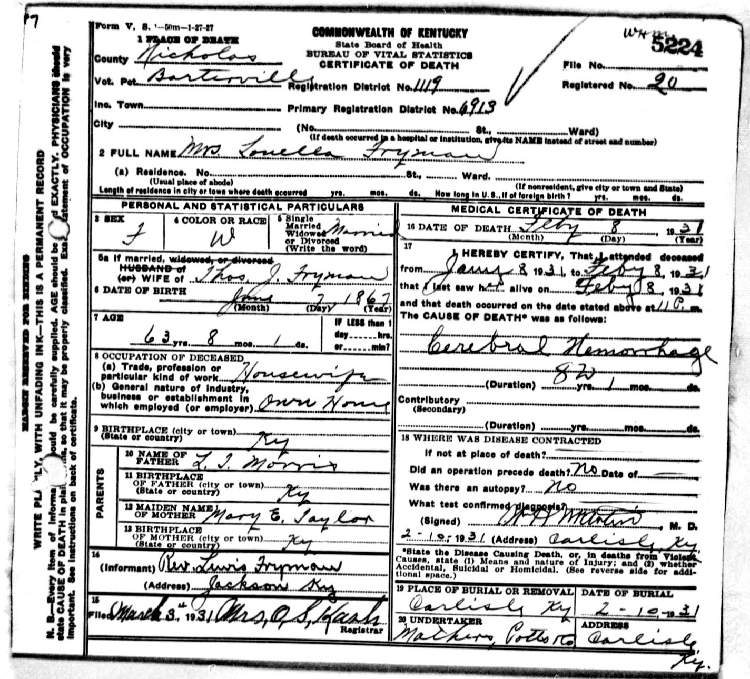 Form V. S. 1-50m-1-27-27
1 PLACE OF DEATH
County Nicholas
Vot. Pct. Barterville
Inc. Town
City
COMMONWEALTH OF KENTUCKY
State Board of Health
BUREAU OF VITAL STATISTICS
CERTIFICATE OF DEATH
5224
File No.
Registration District No. 1119
Registered No. 20
Primary Registration District No. 6913
(No. St., Ward)
(If death occurred in a hospital or institution, give its NAME instead of street and number)
2 FULL NAME Mrs. Louella Fryman
(a) Residence. No. St., Ward.
(Usual place of abode) (If nonresident, give city or town and State)
Length of residence in city or town where death occurred yrs. mos. ds. How long in U. S., if of foreign birth? yrs. mos. ds.
PERSONAL AND STATISTICAL PARTICULARS
3 SEX F
4 COLOR OR RACE W
5 Single Married Widowed or Divorced (Write the word) Married
5a If married, widowed, or divorced
HUSBAND of
(or) WIFE of Thos. J. Fryman
6 DATE OF BIRTH June 7, 1867
(Month) (Day) (Year)
7 AGE
63 yrs. 8 mos. 1 ds.
IF LESS than 1 day hrs. or min?
8 OCCUPATION OF DECEASED
(a) Trade, profession or particular kind of work Housewife
(b) General nature of industry, business or establishment in which employed (or employer) Own Home
9 BIRTHPLACE (city or town)
(State or country) Ky
PARENTS
10 NAME OF FATHER L. T. Morris
11 BIRTHPLACE OF FATHER (city or town)
(State or country) Ky
12 MAIDEN NAME OF MOTHER Mary E. Taylor
13 BIRTHPLACE OF MOTHER (city or town)
(State or country) Ky
14
(Informant) Rev. Lewis Fryman
(Address) Jackson Ky
15
Filed March 3rd 1931 Mrs. O. S. Kash
Registrar
MEDICAL CERTIFICATE OF DEATH
16 DATE OF DEATH Feby 8 1931
(Month) (Day) (Year)
17
I HEREBY CERTIFY, That I attended deceased
from Jany 8 1931, to Feby 8, 1931
that I last saw her alive on Feby 8, 1931
and that death occurred on the date stated above at 11 P. m.
The CAUSE OF DEATH* was as follows:
Cerebral Hemorrhage
82
(Duration) yrs. 1 mos. ds.
Contributory
(Secondary)
(Duration) yrs. mos. ds.
18 WHERE WAS DISEASE CONTRACTED
If not at place of death?
Did an operation precede death? No Date of
Was there an autopsy? No
What test confirmed diagnosis?
(Signed) M. D.
2-10, 1931 (Address) Carlisle Ky
*State the Disease Causing Death, or, in deaths from Violent
Causes, state (1) Means and nature of Injury; and (2) whether
Accidental, Suicidal or Homicidal. (See reverse side for addi-
tional space.)
19 PLACE OF BURIAL OR REMOVAL
Carlisle Ky
DATE OF BURIAL
2-10, 1931
20 UNDERTAKER
Mathers, Potts & Co
ADDRESS
Carlisle
Ky.
MARGIN RESERVED FOR BINDING
WRITE PLAINLY, WITH UNFADING INK—THIS IS A PERMANENT RECORD
N. B.—Every item of information should be carefully supplied. AGE should be EXACTLY. PHYSICIANS should
state CAUSE OF DEATH in plain so that it may be properly classified. statement of OCCUPATION is very
important. See instructions on back of certificate.